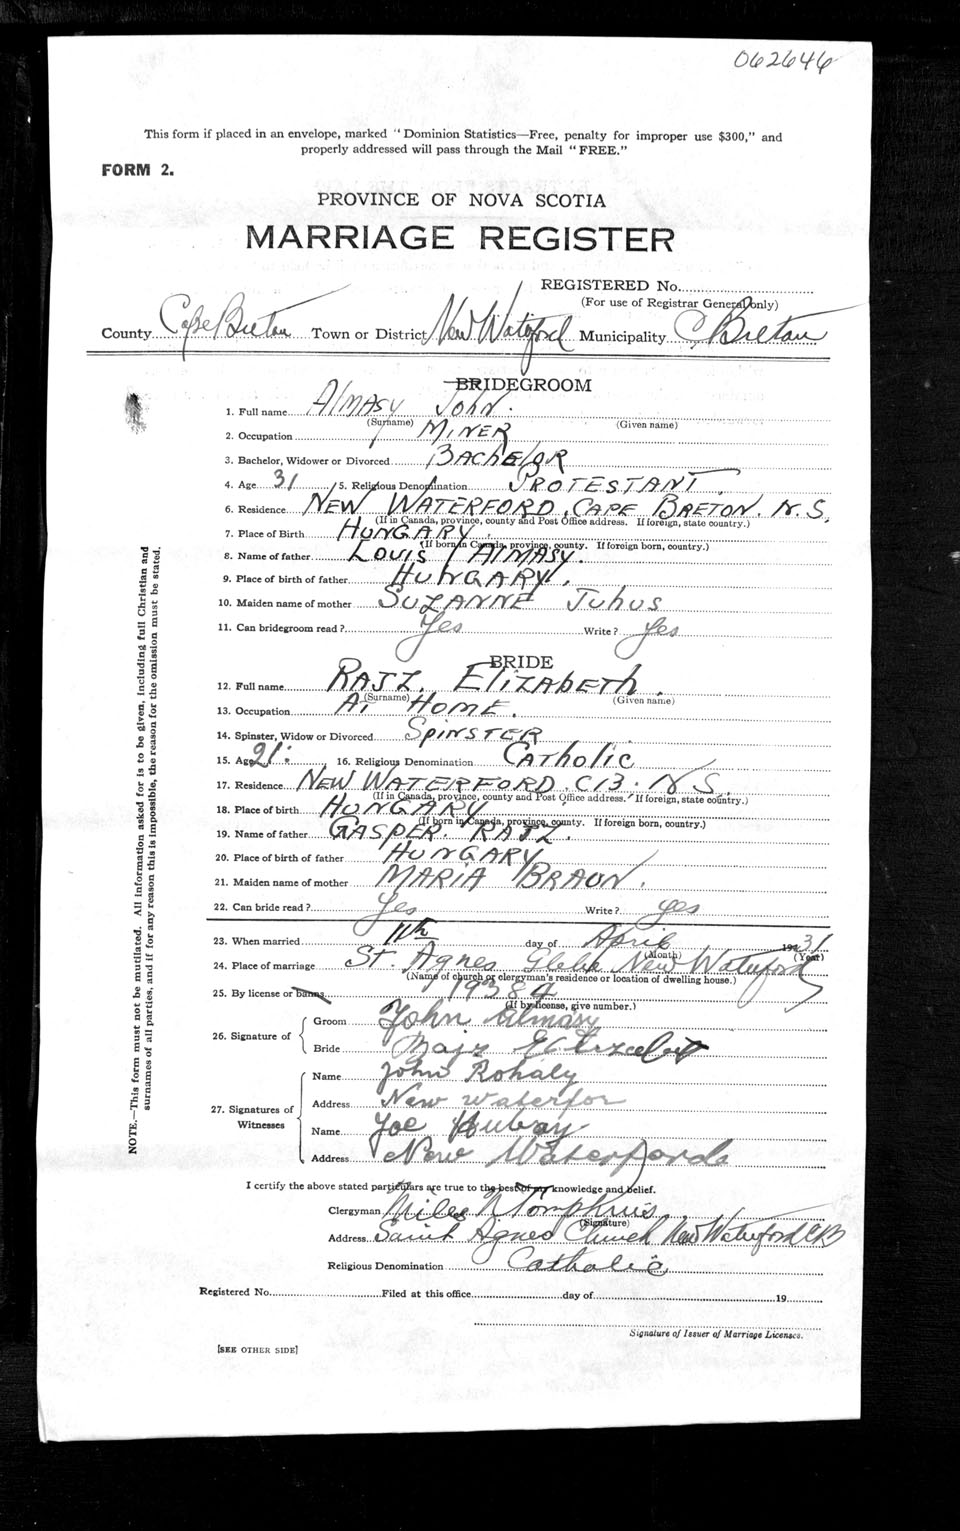 062646
This form if placed in an envelope, marked "Dominion Statistics—Free, penalty for improper use $300," and
properly addressed will pass through the Mail "FREE."
FORM 2.
PROVINCE OF NOVA SCOTIA
MARRIAGE REGISTER
REGISTERED No.
(For use of Registrar General only)
County Cape Breton Town or District New Waterford Municipality C. Breton
BRIDEGROOM
1. Full name Almasy John.
(Surname) (Given name)
2. Occupation MINER
3. Bachelor, Widower or Divorced BAChElOR
4. Age 31 5. Religious Denomination PROTESTANT.
6. Residence NEW WATERFORD, CAPE BRETON. N.S.
(If in Canada, province, county and Post Office address. If foreign, state country.)
7. Place of Birth HUNGARY.
(If born in Canada, province, county. If foreign born, country.)
8. Name of father LOUIS AlMASY.
9. Place of birth of father HUNGARY.
10. Maiden name of mother SUZANNE Juhus
11. Can bridegroom read? Yes Write? Yes
BRIDE
12. Full name RAJZ, ElIZAbETh.
(Surname) (Given name)
13. Occupation At HOME.
14. Spinster, Widow or Divorced SpiNSTER
15. Age 21. 16. Religious Denomination CAThoLiC
17. Residence NEW WATERFORD. C.B. N.S.
(If in Canada, province, county and Post Office address. If foreign, state country.)
18. Place of birth HUNGARY
(If born in Canada, province, county. If foreign born, country.)
19. Name of father GASPER RAJZ.
20. Place of birth of father HUNGARY
21. Maiden name of mother MARIA BRAUN.
22. Can bride read? Yes Write? yes
23. When married 11th day of April 1931
(Month) (Year)
24. Place of marriage St. Agnes Glebe New Waterford
(Name of church or clergyman's residence or location of dwelling house.)
25. By license or banns 19384
(If by license, give number.)
26. Signature of
Groom John Almasy
Bride Rajz
27. Signatures of Witnesses
Name John Rohaly
Address New waterfor
Name Joe
Address New Waterforde
I certify the above stated particulars are true to the best of my knowledge and belief.
Clergyman Miles N Tompkins
(Signature)
Address Saint Agnes Church New Waterford CB
Religious Denomination Catholic
Registered No. Filed at this office day of 19
Signature of Issuer of Marriage Licenses.
[SEE OTHER SIDE]
NOTE.—This form must not be mutilated. All information asked for is to be given, including full Christian and
surnames of all parties, and if for any reason this is impossible, the reason for the omission must be stated.